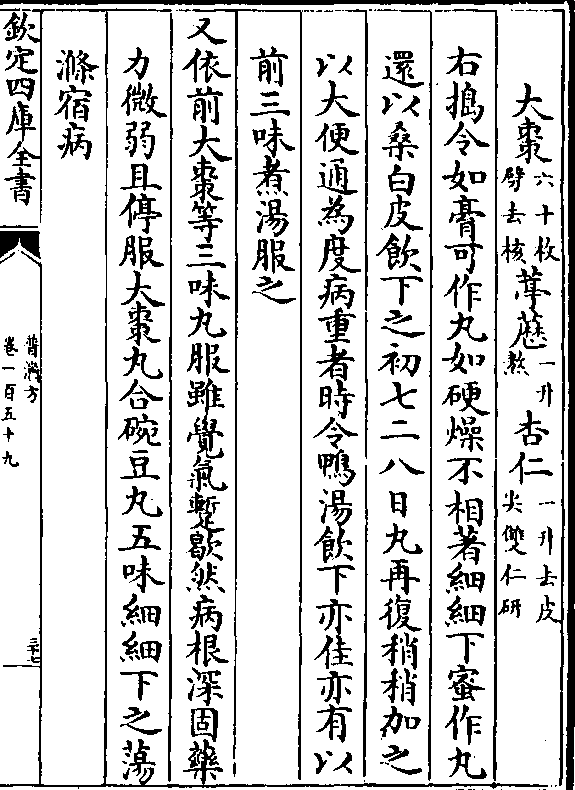 大棗六十枚擘去核葶藶一升熬杏仁一升去皮尖雙仁研
右搗令如膏可作丸如硬燥不相著細細下蜜作丸
還以桑白皮飲下之初七二八日丸再復稍稍加之
以大便通為度病重者時令鴨湯飲下亦佳亦有以
前三味煮湯服之
又依前大棗等三味丸服雖覺氣蹔歇然病根深固藥
力微弱且停服大棗丸合碗豆丸五味細細下之蕩
滌宿病
欽定四庫全書
普濟方
卷一百五十九